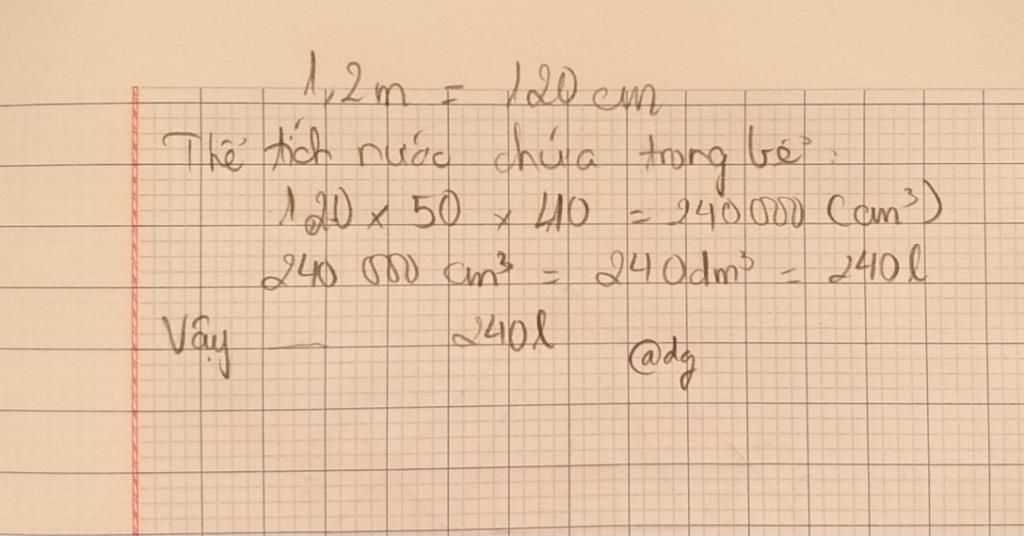 1,2m = 120 cm
Thể tích nước chứa trong bể:
120 × 50 × 40 = 240 000 (cm³)
240 000 cm³ = 240dm³ = 240l
Vậy — 240l
@dg